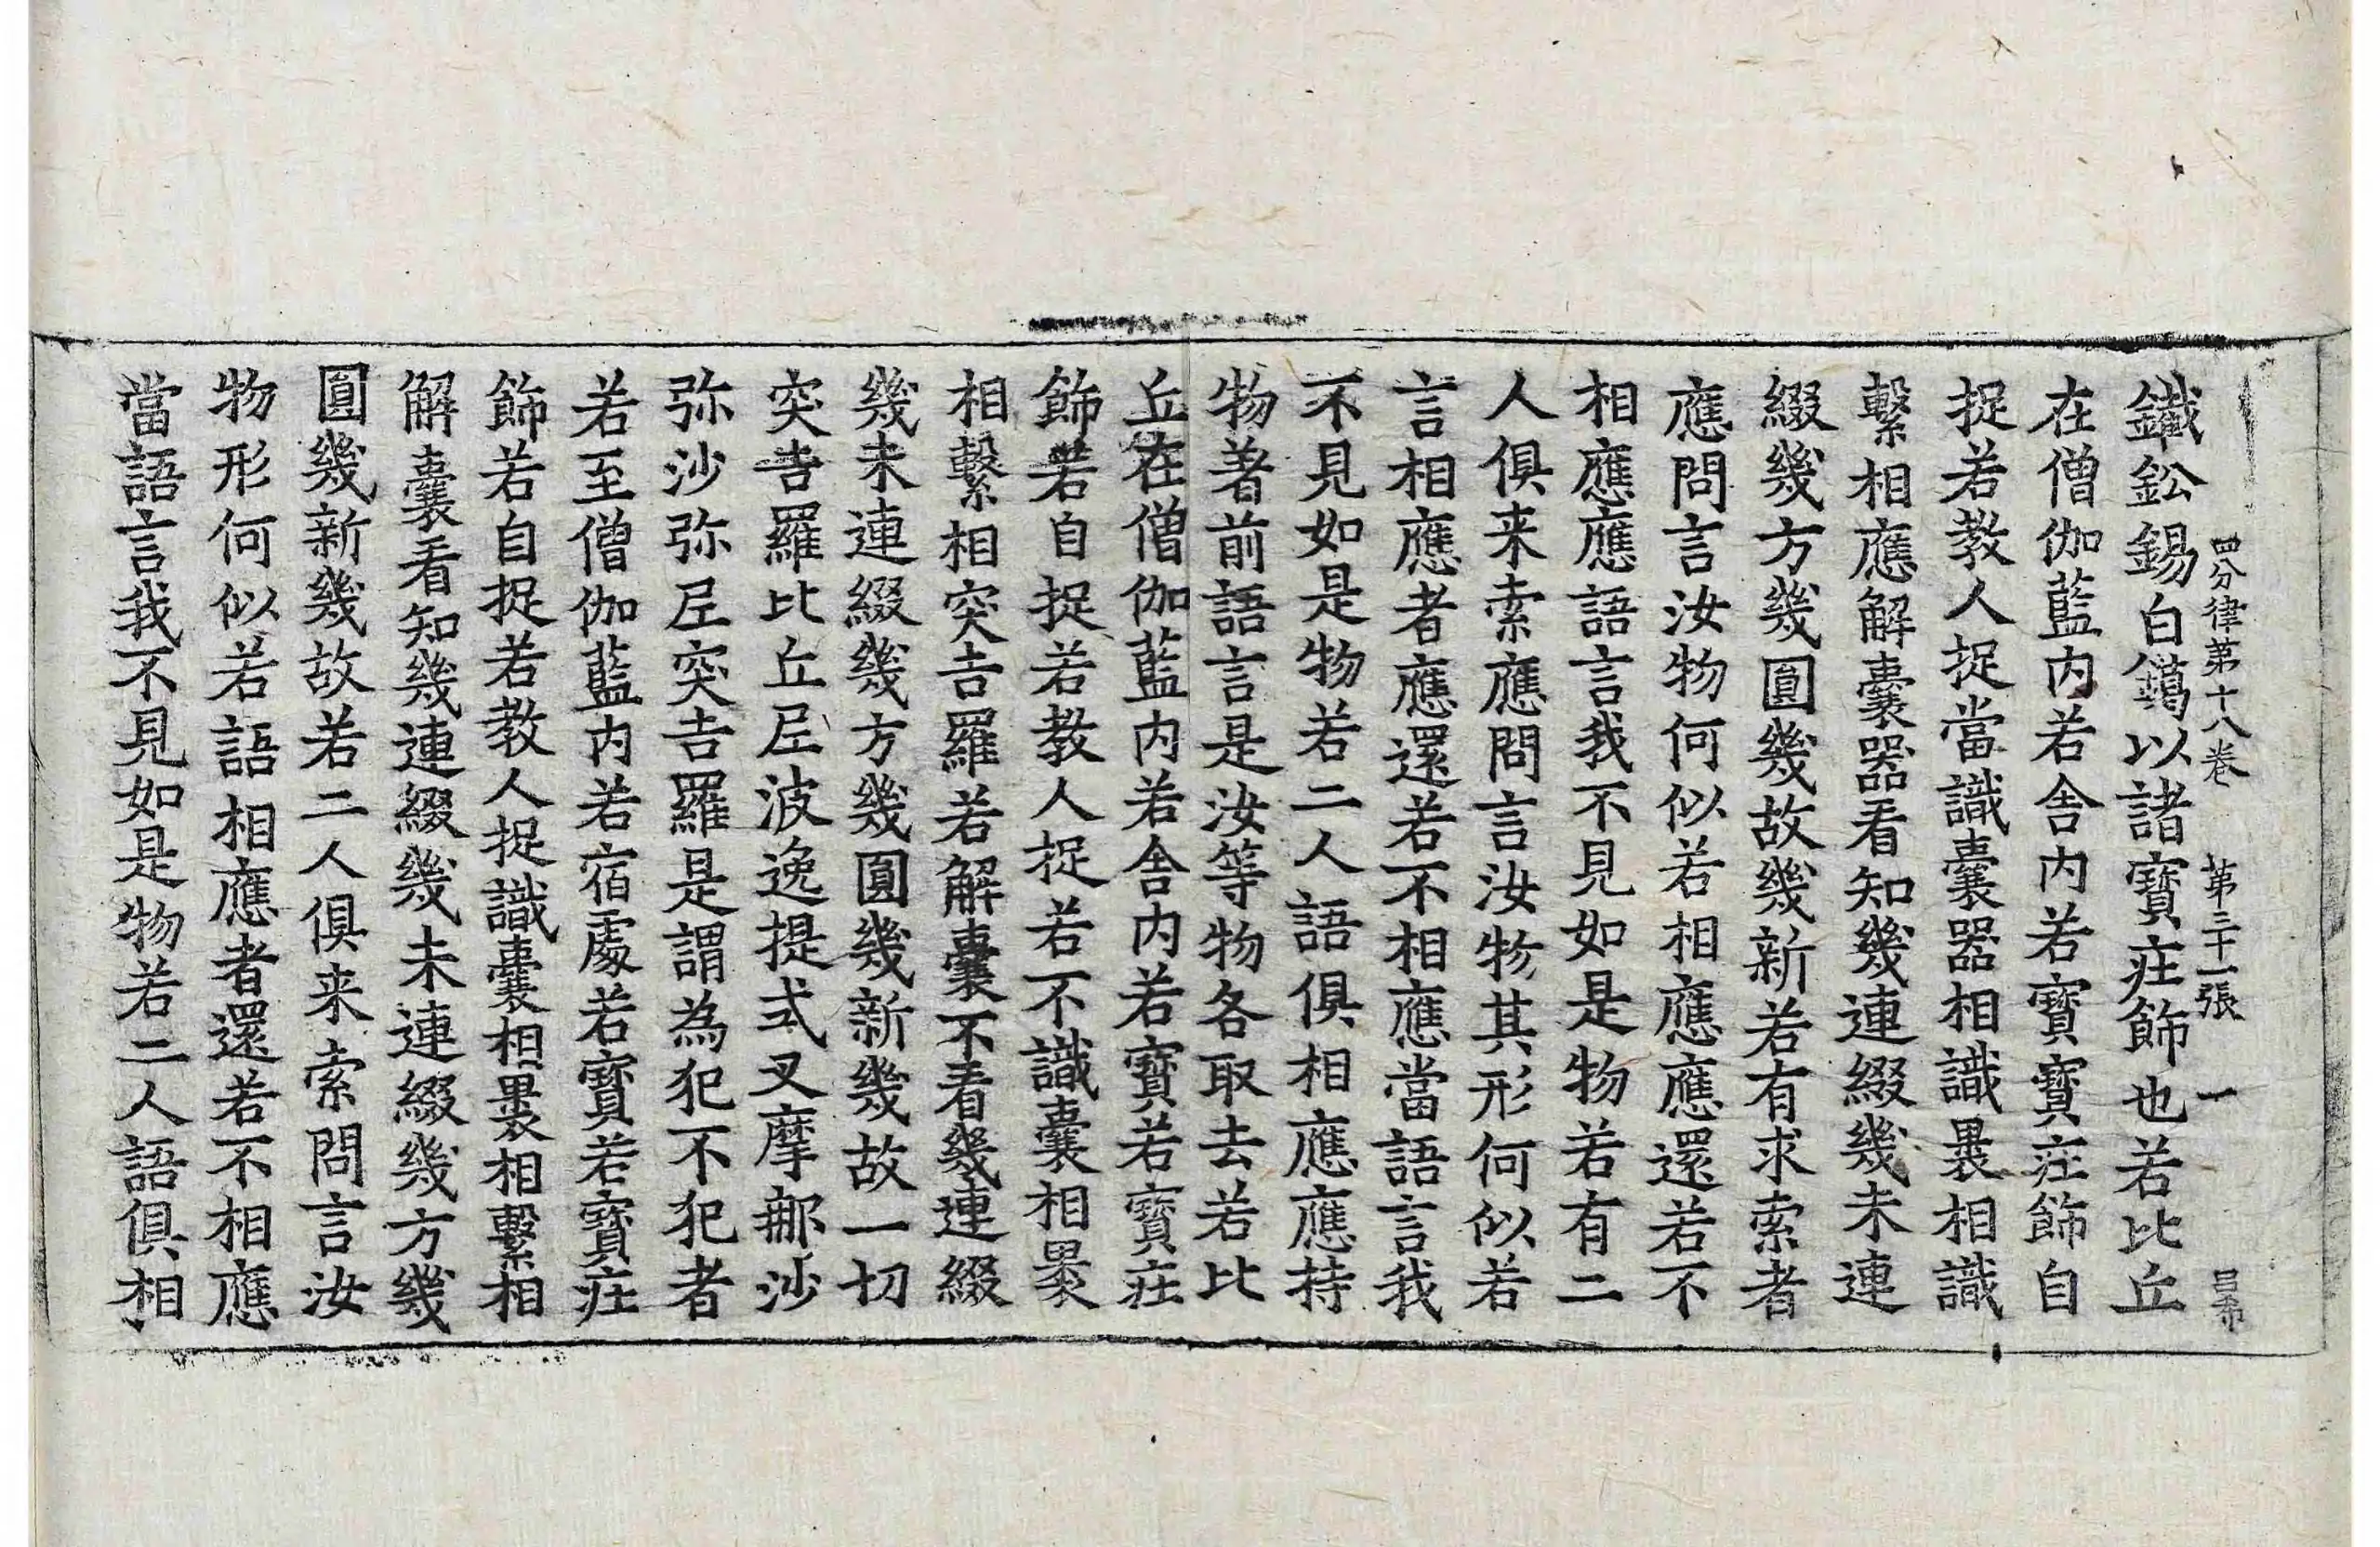 四分律第十八卷 第三十一張 一 昌希
鐵鈆錫白鑞以諸寶㽵飾也若比丘
在僧伽藍內若舍內若寶寶㽵飾自
捉若教人捉當識囊器相識裹相識
繫相應解囊器看知幾連綴幾未連
綴幾方幾圓幾故幾新若有求索者
應問言汝物何似若相應應還若不
相應應語言我不見如是物若有二
人俱来索應問言汝物其形何似若
言相應者應還若不相應當語言我
不見如是物若二人語俱相應應持
物著前語言是汝等物各取去若比
丘在僧伽藍內若舍內若寶若寶㽵
飾若自捉若教人捉若不識囊相裹
相繫相突吉羅若解囊不看幾連綴
幾未連綴幾方幾圓幾新幾故一切
突吉羅比丘尼波逸提式叉摩那沙
弥沙弥尼突吉羅是謂為犯不犯者
若至僧伽藍內若宿處若寶若寶㽵
飾若自捉若教人捉識囊相裹相繫相
解囊看知幾連綴幾未連綴幾方幾
圓幾新幾故若二人俱来索問言汝
物形何似若語相應者還若不相應
當語言我不見如是物若二人語俱相